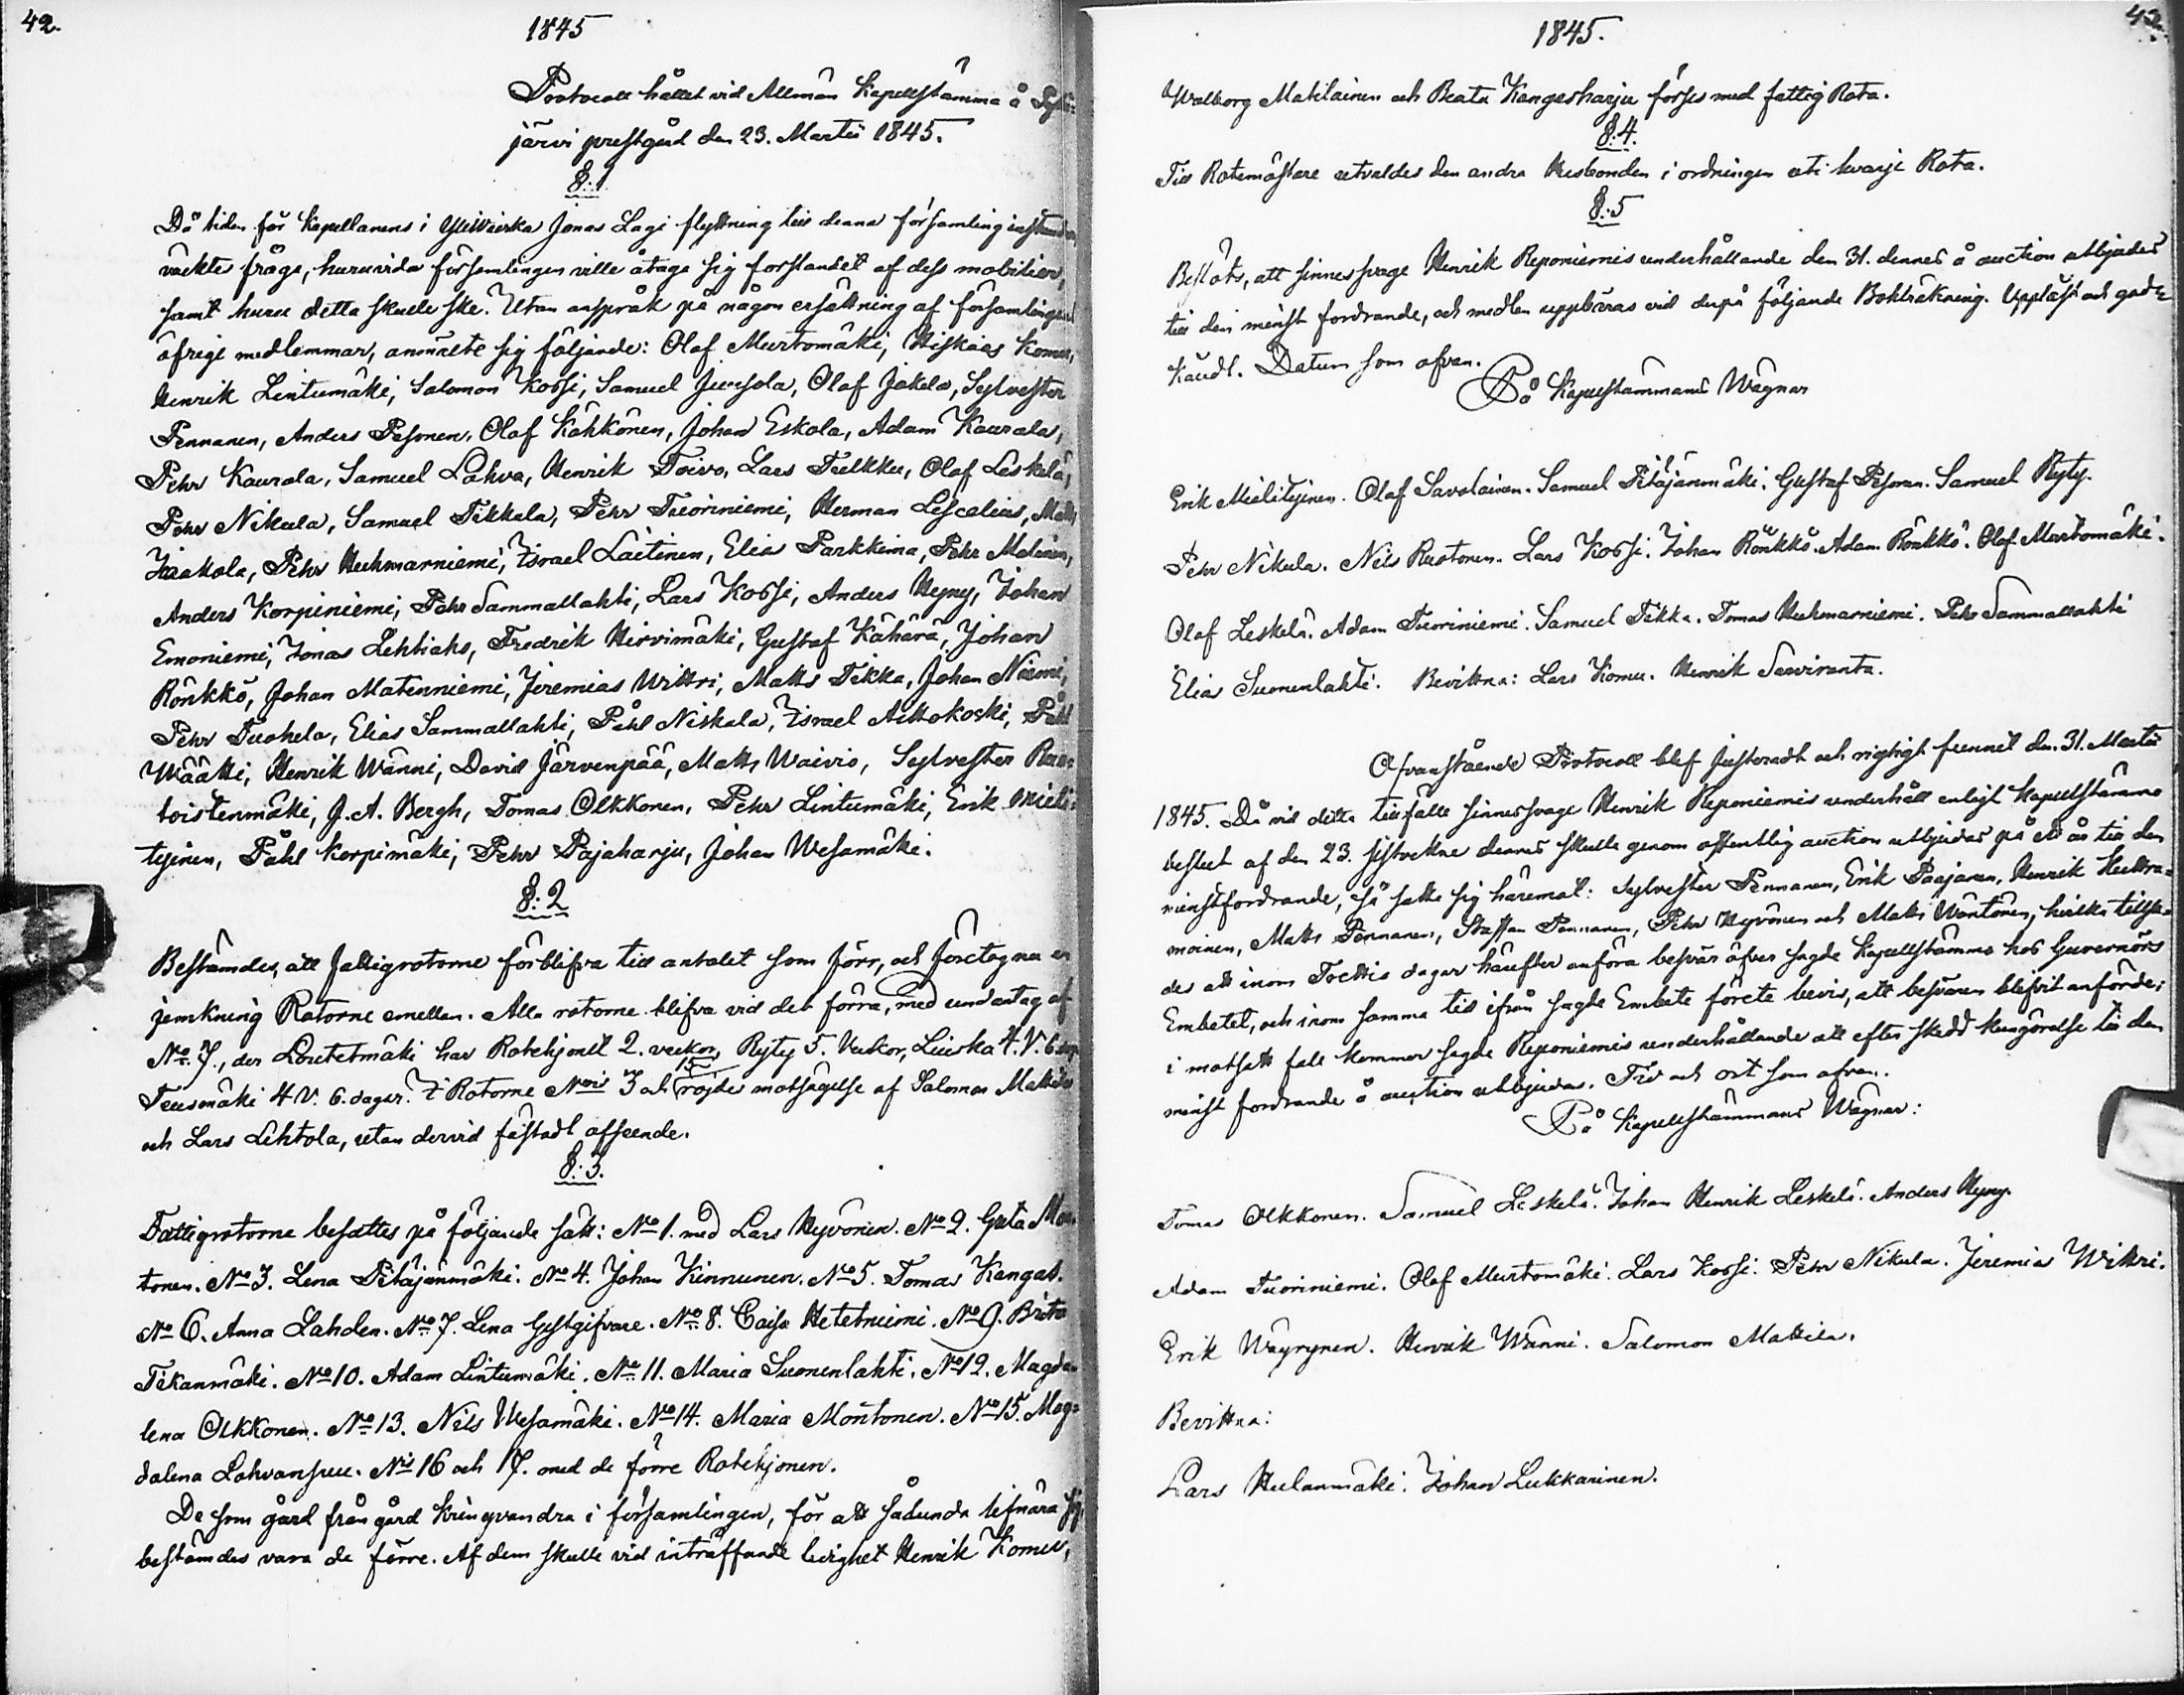 42.
1845
Protocoll hållet vid Allmän Kapellstämma å
järvi prestgård den 23. Martii 1845.
§:1
Då tiden för Kapellanens i Ylivieska Jonas Lagi flyttning till denna församling
väcktes fråga, huruvida församlingen ville åtaga sig forslandet af dess mobilier,
samt huru detta skulle ske. Utan anspråk på någon ersättning af församlingens
öfrige medlemmar, anmälte sig följande: Olof Murtomäki, Hiskias Komu,
Henrik Lintumäki, Salomon Kossi, Samuel Jussola, Olof Jokela, Sylvester
Pennanen, Anders Pesonen, Olof Kähkönen, Johan Eskola, Adam Kaurala,
Pehr Kaurala, Samuel Lohva, Henrik Toivo, Lars Tulkku, Olof Leskelä,
Pehr Nikula, Samuel Tikkala, Pehr Tuoriniemi, Herman Lescelius, Matts
Jaakola, Pehr Huhmarniemi, Israel Laitinen, Elias Parkkima, Pehr Molinen,
Anders Korpiniemi, Pehr Sammallahti, Lars Kossi, Anders Hyny, Johan
Emoniemi, Jonas Lehtiaho, Fredrik Hirvimäki, Gustaf Kähärä, Johan
Rönkkö, Johan Matenniemi, Jeremias Wittri, Matts Tikka, Johan Niemi,
Pehr Tuohela, Elias Sammallahti, Påhl Niskala, Israel Aittokoski, Påhl
Wäätti, Henrik Wänni, David Järvenpää, Matts Waivio, Sylvester Ruo-
toistenmäki, J. A. Bergh, Tomas Olkkonen, Pehr Lintumäki, Erik Mieli-
tyinen, Påhl Korpimäki, Pehr Pajaharju, Johan Wesamäki.
§:2
Bestämdes, att fattigrotorne förblifva till antalet som förr, och företagna en
jemkning Rotorne emellan. Alla rotorne blifva vid det förra, med undantag af
No 7., der Loutetmäki har Rotehjonet 2. veckor, Ryty 5. Veckor, Luiska 4. V. 6.
Teusmäki 4 V. 6. dagar. I Rotorne Nris 3 och 15 röjdes motsägelse af Salomon Mattila
och Lars Lehtola, utan dervid fästadt afseende.
§:3.
Fattigrotorne besattes på följande sätt: No 1. med Lars Hyvönen. No 2. Greta Mon-
tonen. No 3. Lena Pitäjänmäki. No 4. Johan Kinnunen. No 5. Tomas Kangas.
No 6. Anna Lahden. No 7. Lena Gestgifvare. No 8. Caisa Hetetniemi. No 9. Brita
Tikanmäki. No 10. Adam Lintumäki. No 11. Maria Suonenlahti. No 12. Magda-
lena Olkkonen. No 13. Nils Wesamäki. No 14. Maria Montonen. No 15. Mag-
dalena Lohvansuu. Nris 16 och 17. med de förre Rotehjonen.
De som gård från gård kringvandra i församlingen, för att sålunda lifnära sig,
bestämdes vara de förre. Af dem skulle vid inträffande ledighet Henrik Komu,
1845.
43.
Walborg Matilainen och Beata Kangasharju förses med fattig Rota.
§:4.
Till Rotemästare utvaldes den andra Husbonden i ordningen uti hvarje Rota.
§:5
Beslöts, att sinnessvage Henrik Reponiemis underhållande den 31. dennes å auction utbjudes
till den minst fordrande, och medlen uppbäras vid derpå följande Boklräkning. Uppläst och godz
känd. Datum som ofvan.
På Kapellstämmans Wägnar
Erik Mielityinen. Olof Savolainen. Samuel Pitäjänmäki. Gustaf Pesonen. Samuel Ryty.
Pehr Nikula. Nils Ruotonen. Lars Kossi. Johan Rönkkö. Adam Rönkkö. Olof Murtomäki.
Olof Leskelä. Adam Tuoriniemi. Samuel Tikka. Tomas Huhmarniemi. Pehr Sammallahti
Elias Suonenlahti. Bevittna: Lars Komu. Henrik Saviranta.
Ofvanstående Protocoll blef justeradt och rigtigt funnit den 31. Martii
1845. Då vid detta tillfälle sinnessvage Henrik Reponiemis underhåll enligt Kapellstämmo
beslut af den 23. sistvekne dennes skulle genom offentlig auction utbjudas på ett år till den
minstfordrande, så satte sig häremot: Sylvester Pennanen, Erik Paajanen, Henrik Huttu-
moinen, Matts Pennanen, Staffan Pennanen, Pehr Hyvönen och Matts Wäntönen, hvilka tillsa-
des att inom Trettio dagar härefter anföra besvär öfver sagde Kapellstämma hos Guvernörs
Embetet, och inom samma tid ifrån sagde Embete förete bevis, att besvären blifvit anförde;
i motsatt fall kommer sagde Reponiemis underhållande att efter skedd kungörelse till den
minst fordrande å auction utbjudas. Tid och ort som ofvan.
På Kapellstämmans Wägnar:
Tomas Olkkonen. Samuel Leskelä. Johan Henrik Leskelä. Anders Hyny.
Adam Tuoriniemi. Olof Murtomäki. Lars Kossi. Pehr Nikula. Jeremias Wittri.
Erik Wäyrynen. Henrik Wänni. Salomon Mattila.
Bevittna:
Lars Hulanmäki. Johan Lukkarinen.